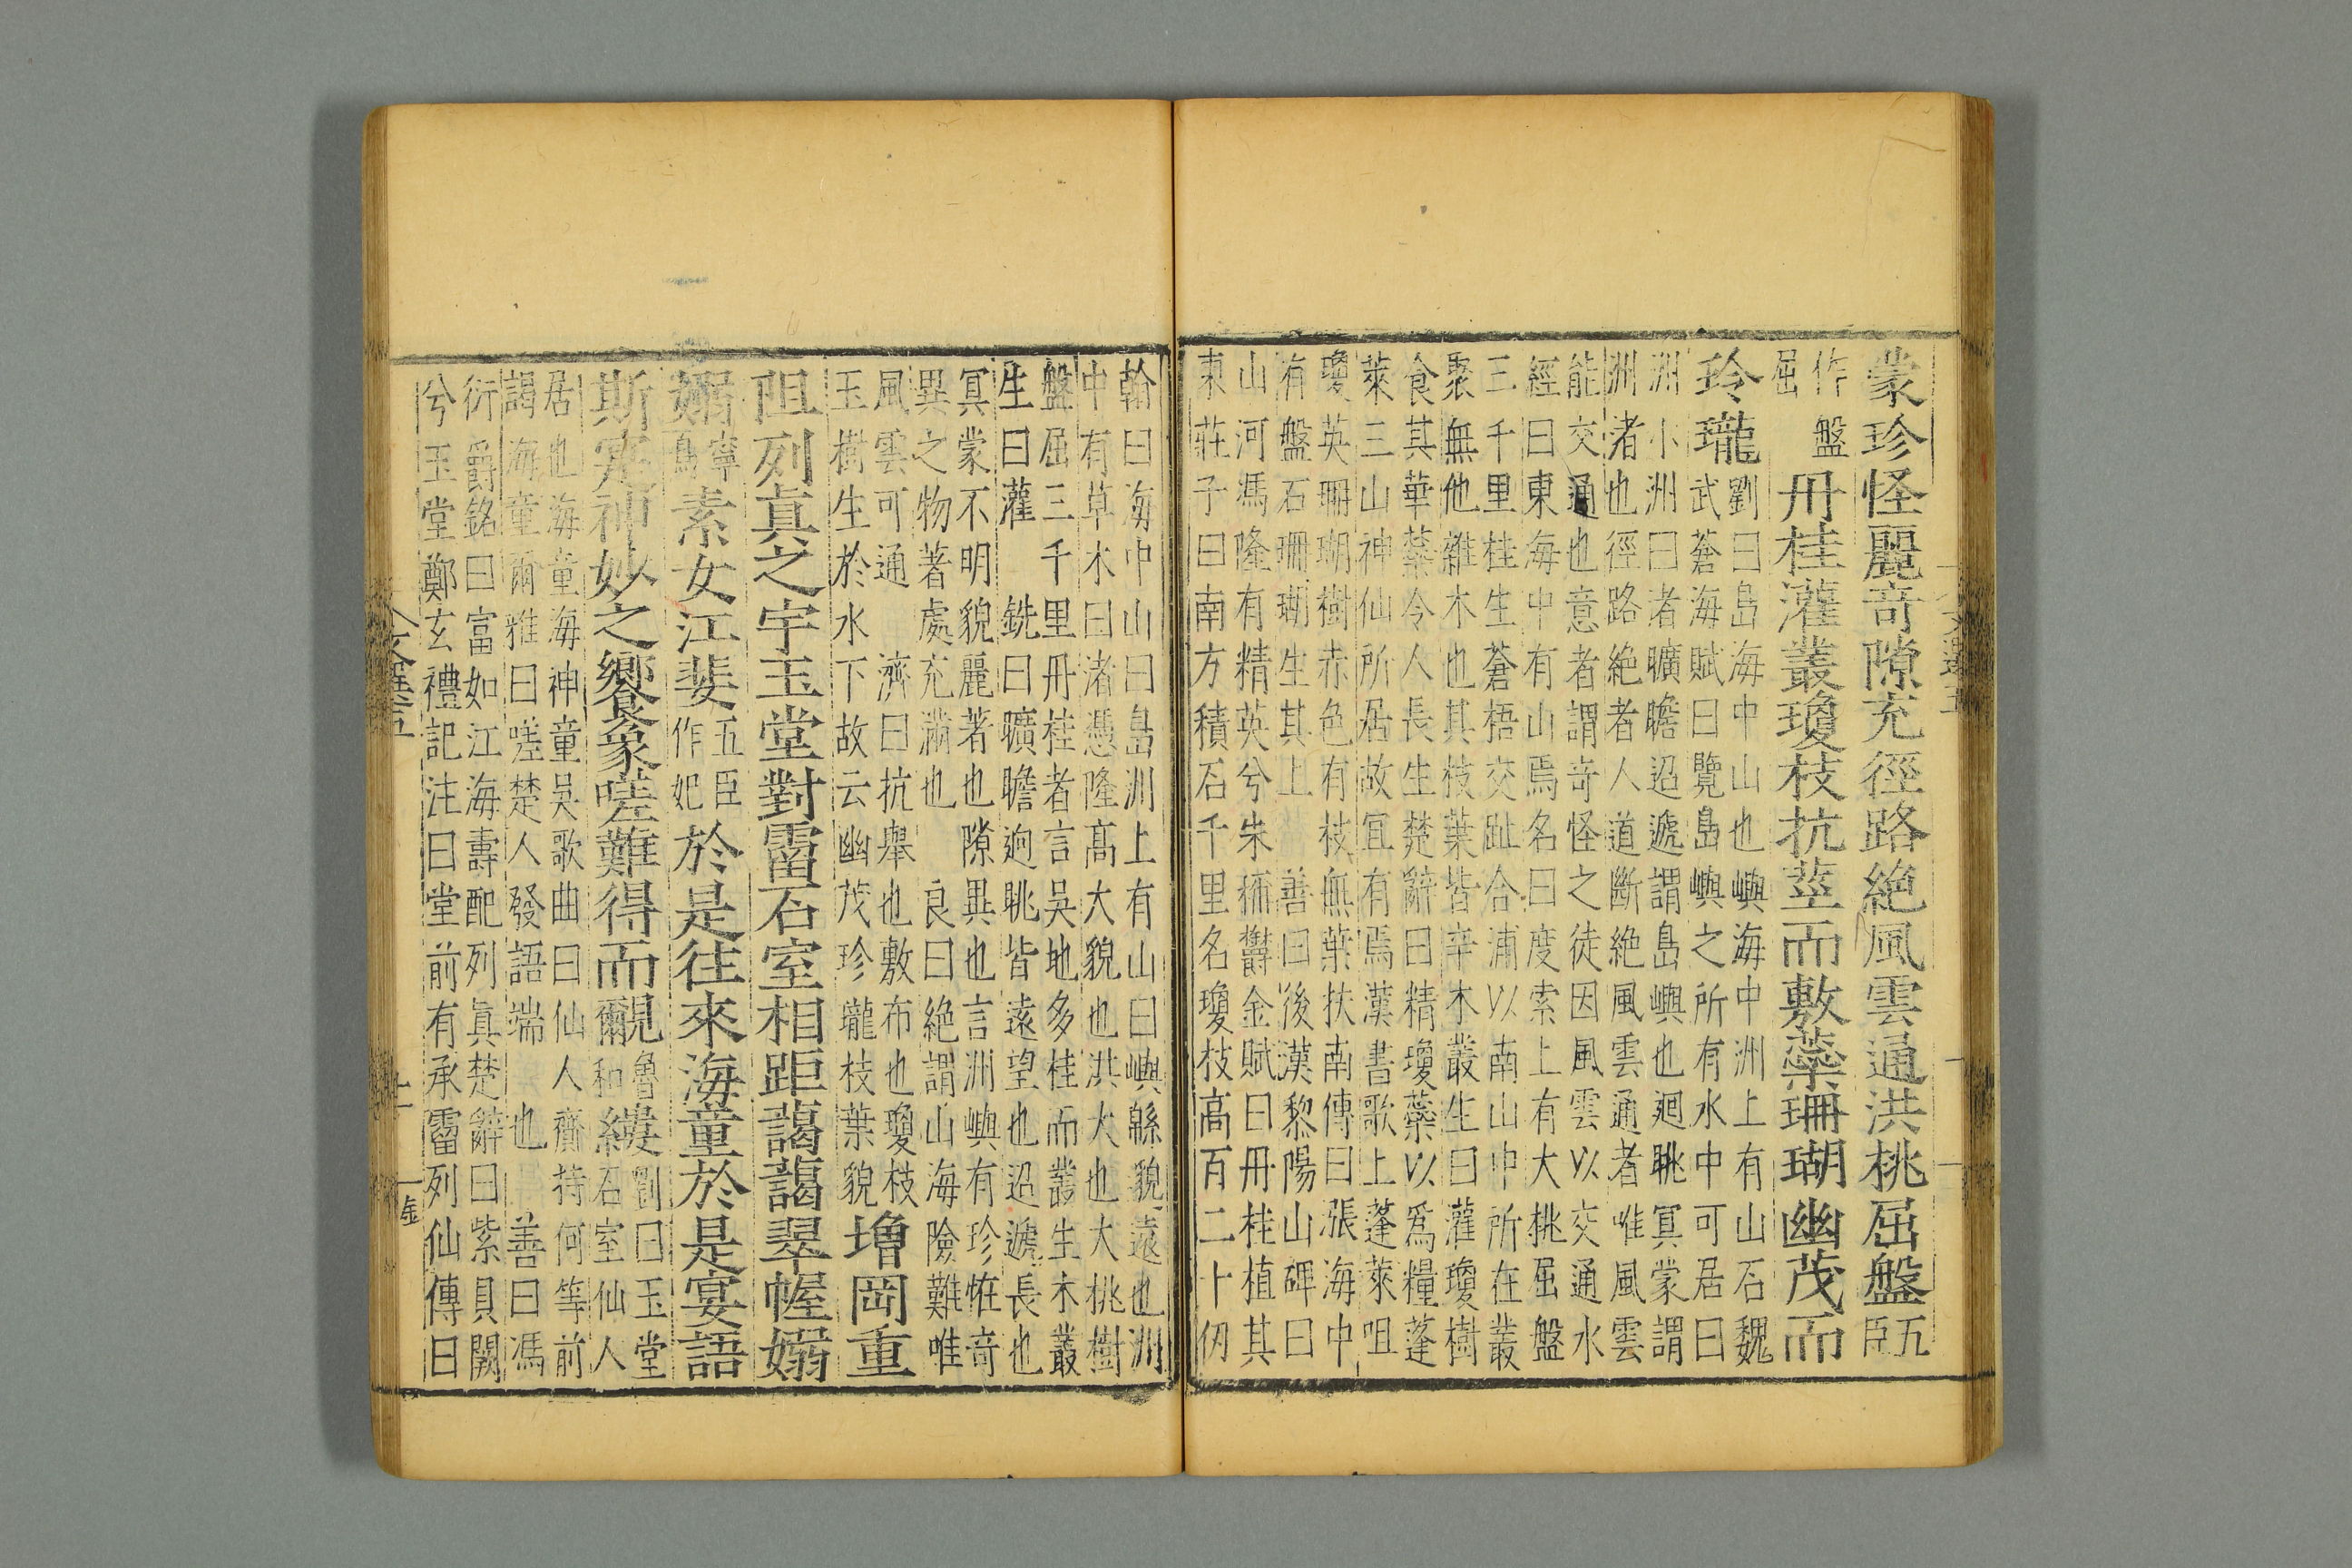 蒙珍怪麗竒隙充徑路絶風雲通洪桃屈盤五臣
作盤
屈
丹桂灌叢瓊枝抗莖而敷蘂珊瑚幽茂而
玲瓏
劉曰島海中山也嶼海中洲上有山石魏
武蒼海賦曰覽島嶼之所有水中可居曰
洲小洲曰者曠瞻迢遞謂島嶼也迴眺冥蒙謂
洲渚也徑路絶者人道斷絶風雲通者唯風雲
能交通也意者謂竒怪之徒因風雲以交通水
經曰東海中有山焉名曰度索上有大桃屈盤
三千里桂生蒼梧交趾合浦以南山中所在叢
聚無他雜木也其枝葉皆辛木叢生曰灌瓊樹
食其華蘂令人長生楚辭曰精瓊蘂以爲糧蓬
萊三山神仙所居故宜有焉漢書歌上蓬萊咀
瓊英珊瑚樹赤色有枝無葉扶南傳曰漲海中
有盤石珊瑚生其上 善曰後漢黎陽山碑曰
山河馮隆有精英兮朱穪鬱金賦曰丹桂植其
東莊子曰南方積石千里名瓊枝高百二十仞
翰曰海中山曰島洲上有山曰嶼緜貌遠也洲
中有草木曰渚憑隆高大貌也洪大也大桃樹
盤屈三千里丹桂者言吳地多桂而叢生木叢
生曰灌 銑曰曠瞻逈眺皆遠望也迢遞長也
冥蒙不明貌麗著也隙異也言洲嶼有珍恠竒
異之物著處充滿也 良曰絶謂山海險難唯
風雲可通 濟曰抗舉也敷布也瓊枝
玉樹生於水下故云幽茂珍瓏枝葉貌
增岡重
阻列真之宇玉堂對霤石室相距藹藹翠幄嫋
嫋寧鳥素女江斐五臣作妃於是往來海童於是宴語
斯寔神妙之響象嗟難得而覼爾和縷劉曰玉堂石室仙人
居也海童海神童吳歌曲曰仙人齎持何等前
謁海童爾雅曰嗟楚人發語端 也 善曰馮
衍爵銘曰富如江海壽配列眞楚辭曰紫貝闕
兮玉堂鄭玄禮記注曰堂前有承霤列仙傳曰
文選五
十一